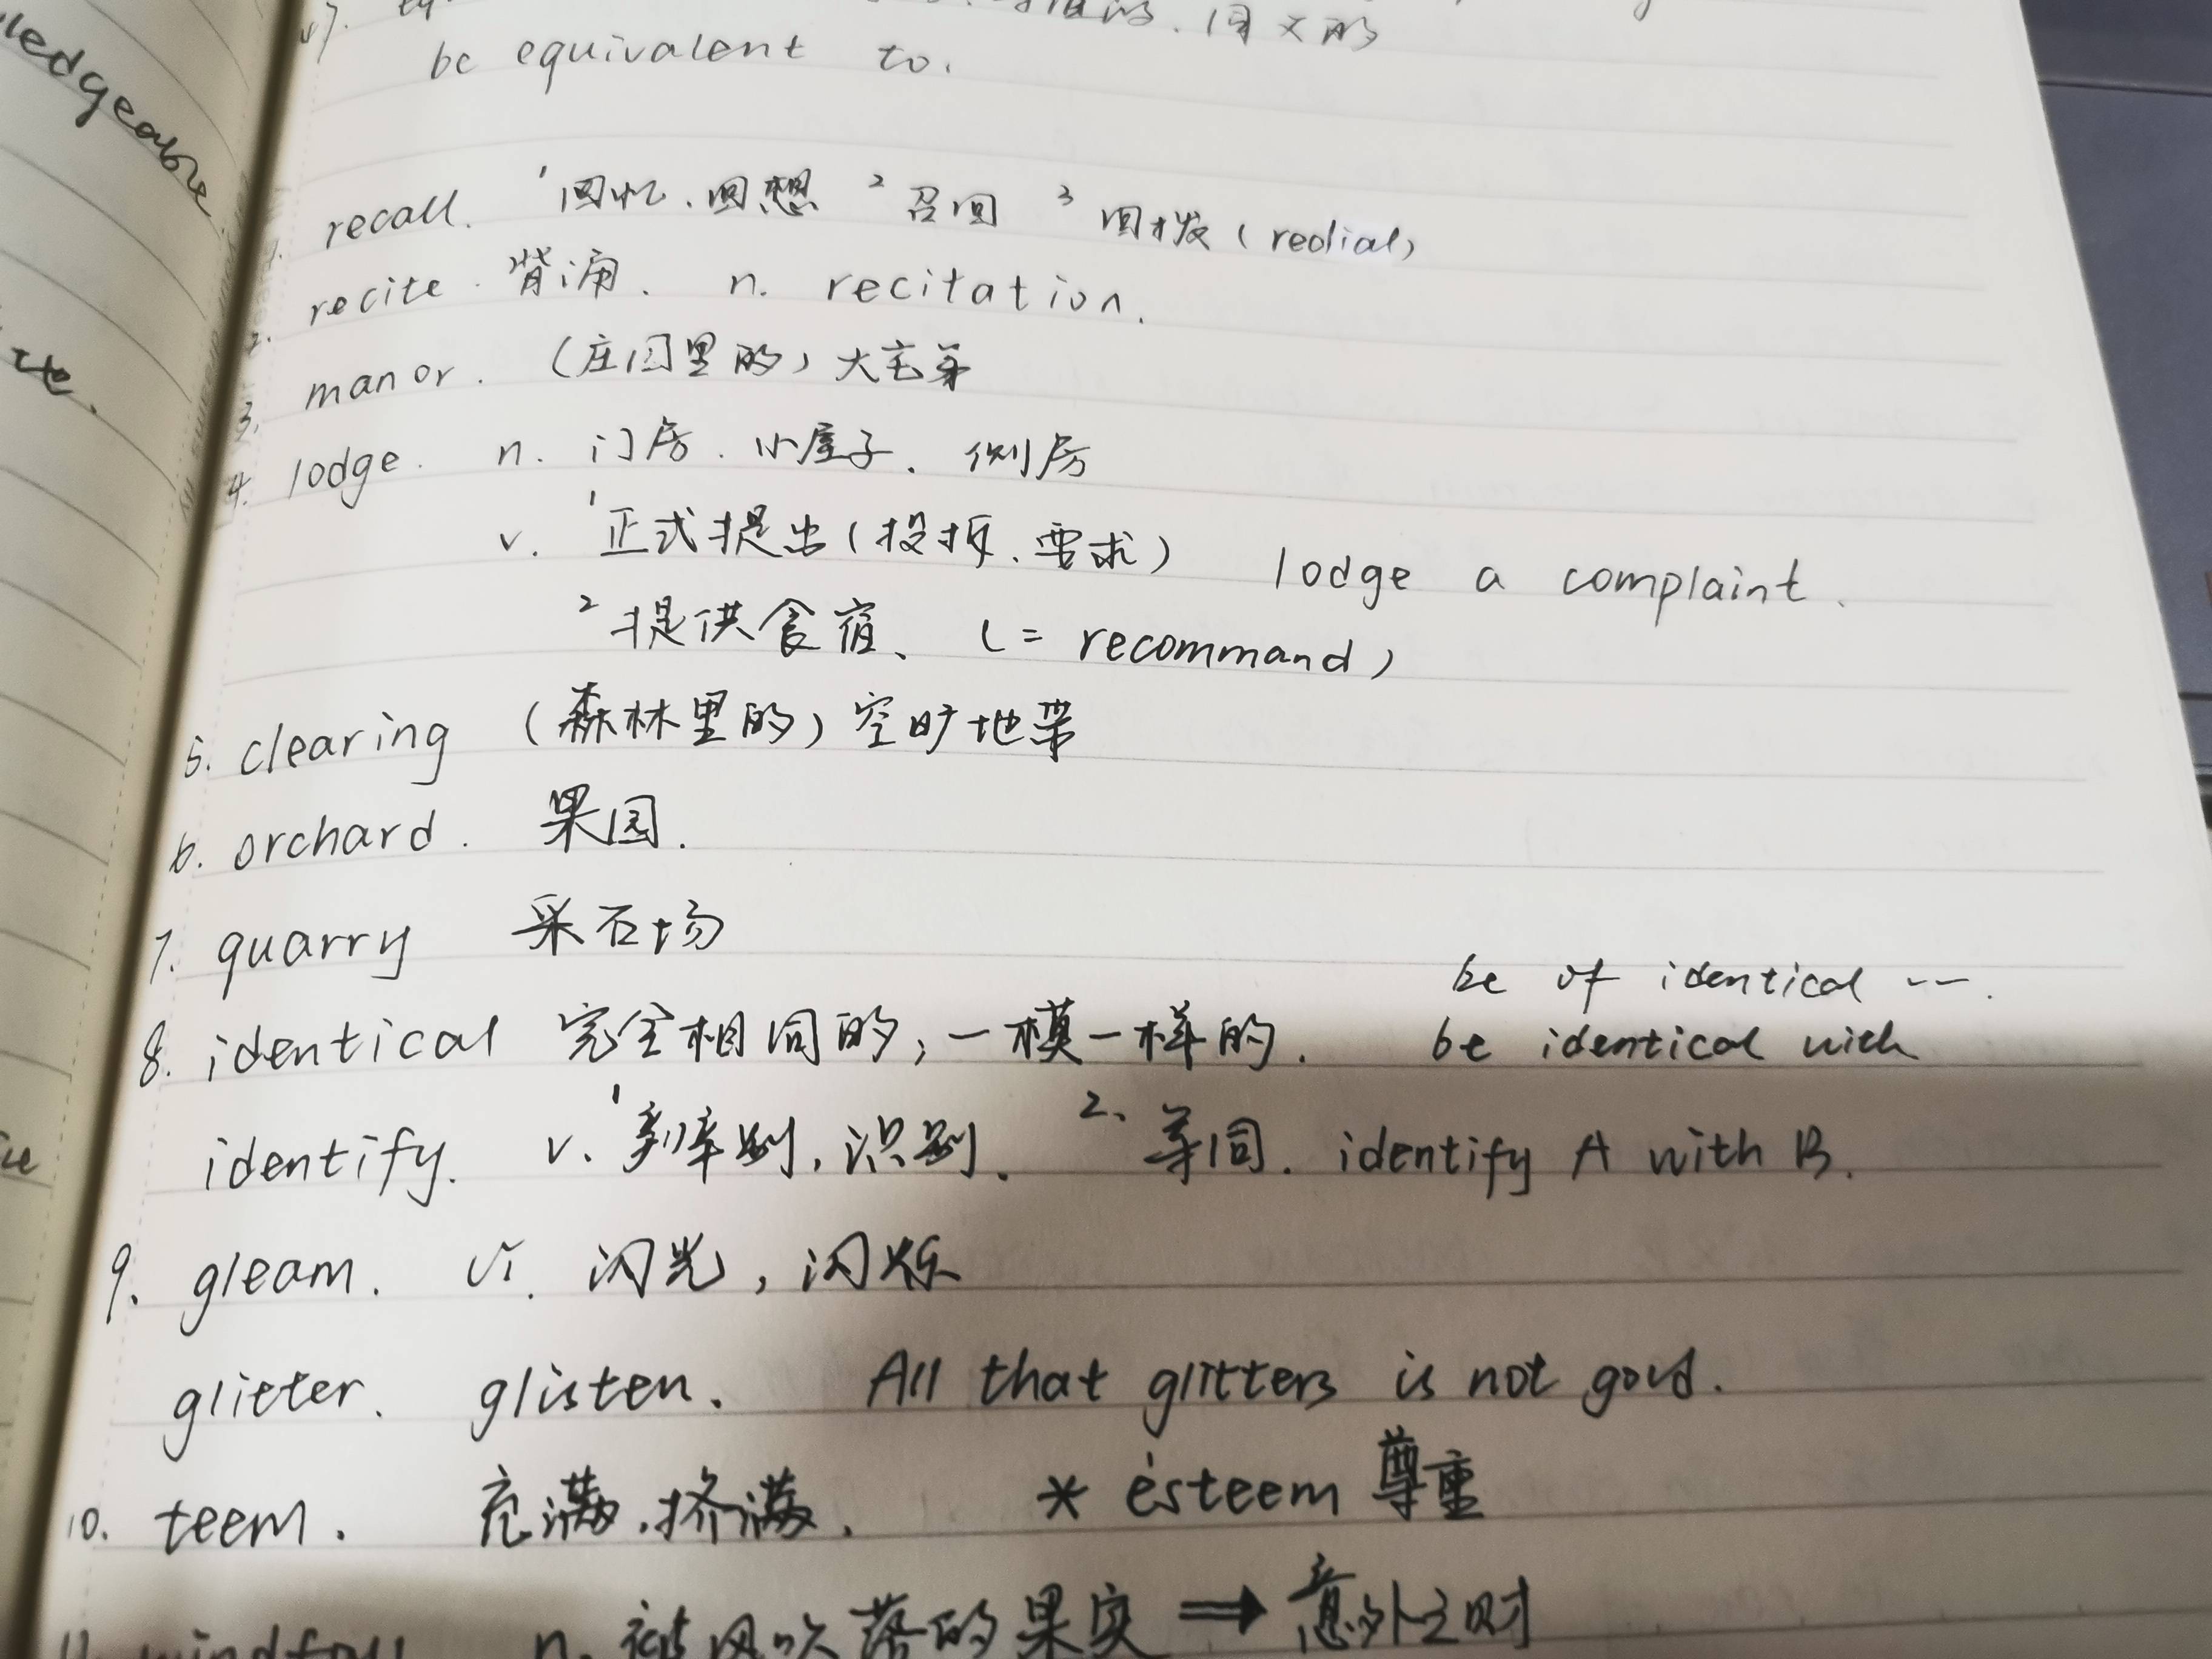 ledgeable
be equivalent to.
1. recall. ¹回忆、回想 ²召回 ³回拨(redial)
2. recite. 背诵. n. recitation.
3. manor. (庄园里的)大宅第
4. lodge. n. 门房. 小屋子. 侧房
v. ¹正式提出(投拆、要求) lodge a complaint.
²提供食宿、(= recommand)
5. clearing (森林里的)空旷地带
6. orchard. 果园.
7. quarry 采石场
be of identical ---.
8. identical 完全相同的,一模一样的. be identical with
identify. v. ¹辨别,识别. 2、等同. identify A with B.
9. gleam. vi. 闪光,闪烁
glitter. glisten. All that glitters is not gold.
10. teem. 充满.挤满. * esteem 尊重
11. windfall n. 被风吹落的果实 → 意外之财